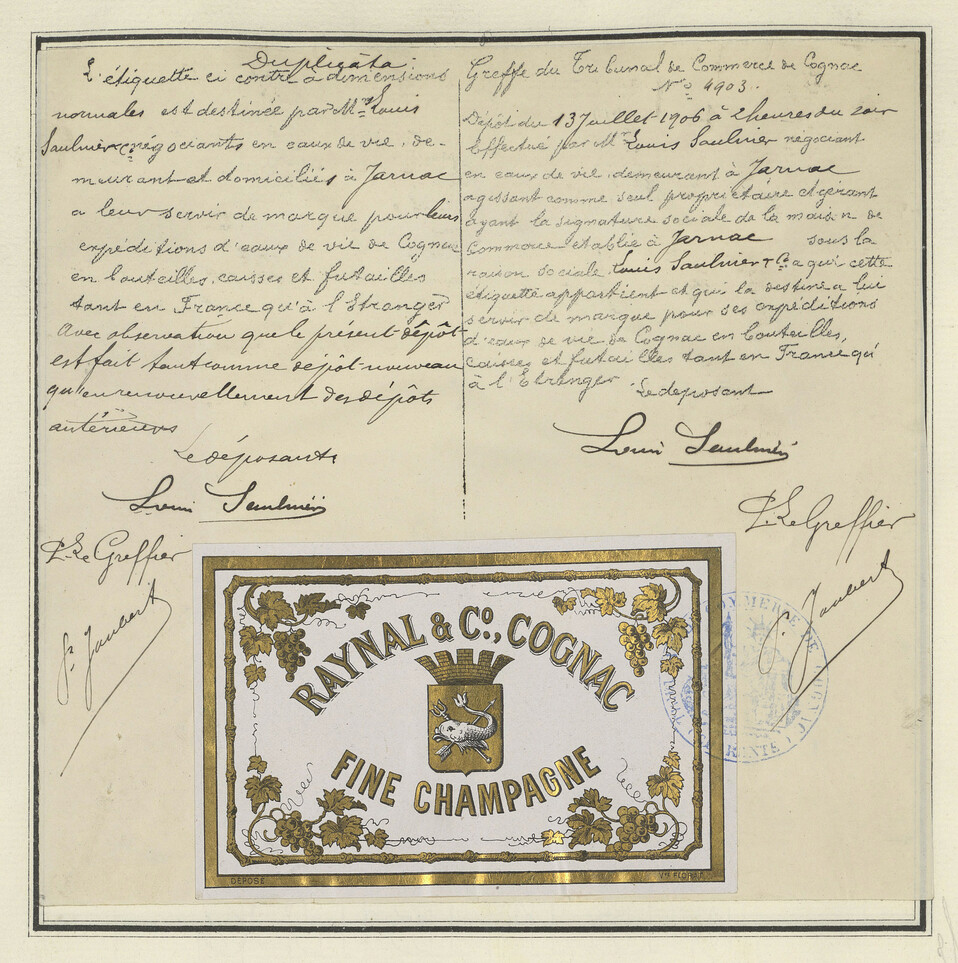 Duplicata
L'étiquette ci contre à dimensions
normales est destinée par Mr. Louis
Saulnier & Cie négociants en eaux de vie, de-
meurant et domiciliés à Jarnac
a leur servir de marque pour leurs
expéditions d'eaux de vie de Cognac
en bouteilles, caisses et futailles
tant en France qu'à l'Etranger
Avec observation que le present dépôt
est fait tant comme dépôt nouveau
qu'en renouvellement des dépôts
antérieurs
Le déposant
Louis Saulnier
P. Le Greffier
Jaubert
Greffe du Tribunal de Commerce de Cognac
No. 4903.
Dépôt du 13 Juillet 1906 à 2 heures du soir
Effectué par Mr. Louis Saulnier négociant
en eaux de vie, demeurant à Jarnac
agissant comme seul propriétaire et gérant
ayant la signature sociale de la maison de
Commerce etablie à Jarnac sous la
raison sociale Louis Saulnier & Cie a qui cette
étiquette appartient et qui la destine a lui
servir de marque pour ses expéditions
d'eaux de vie de Cognac en bouteilles,
caisses et futailles tant en France qu'
à l'Etranger
Le deposant
Louis Saulnier
P. Le Greffier
Jaubert
RAYNAL & Co., COGNAC
FINE CHAMPAGNE
DÉPOSÉ
COMMERCE DE COGNAC